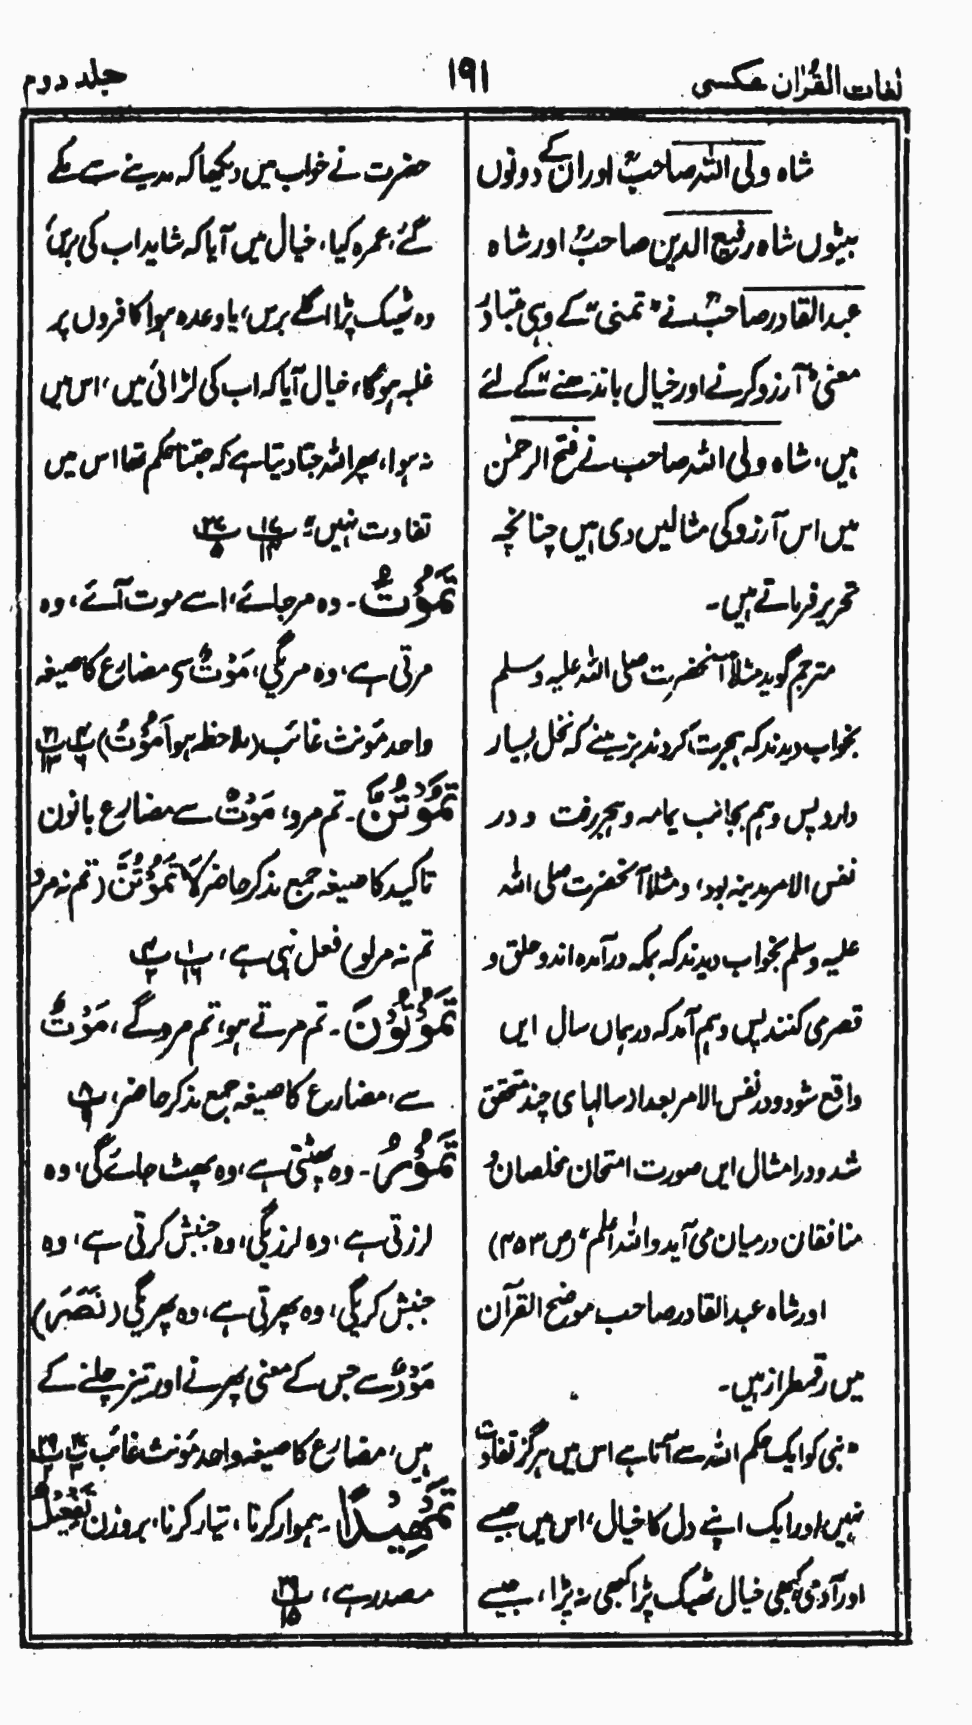 لغات القرآن عکسی
۱۹۱
جلد دوم
شاہ ولی اللہ صاحبؒ اور ان کے دونوں
بیٹوں شاہ رفیع الدین صاحبؒ اور شاہ
عبدالقادر صاحبؒ نے "تمنی" کے وہی متبادر
معنی "آرزو کرنے اور خیال باندھنے" کے لئے
ہیں، شاہ ولی اللہ صاحب نے فتح الرحمٰن
میں اس آرزو کی مثالیں دی ہیں چنانچہ
تحریر فرماتے ہیں۔
مترجم گوید مثلاً آنحضرت صلی اللہ علیہ وسلم
بخواب دیدند کہ ہجرت کردند بزمینے کہ نخل بسیار
دارد پس وہم بجانب یمامہ وہجر رفت و در
نفس الامر مدینہ بود، و مثلاً آنحضرت صلی اللہ
علیہ وسلم بخواب دیدند کہ بمکہ درآمدہ اند و حلق و
قصر می کنند پس وہم آمد کہ درہماں سال ایں
واقع شود و در نفس الامر بعد از سالہای چند متحقق
شد و در امثال ایں صورت امتحان مخلصان و
منافقان درمیان می آید واللہ اعلم" (ص ۴۵۳)
اور شاہ عبدالقادر صاحب موضح القرآن
میں رقمطراز ہیں۔
"نبی کو ایک حکم اللہ سے آتا ہے اس میں ہرگز تفاوت
نہیں اور ایک اپنے دل کا خیال، اس میں جیسے
اور آدمی کبھی خیال ٹھیک پڑا کبھی نہ پڑا، جیسے
حضرت نے خواب میں دیکھا کہ مدینے سے مکے
گئے، عمرہ کیا، خیال میں آیا کہ شاید اب کی برس،
وہ ٹھیک پڑا اگلے برس، یا وعدہ ہوا کافروں پر
غلبہ ہوگا، خیال آیا کہ اب کی لڑائی میں، اس میں
نہ ہوا، پھر اللہ جتا دیتا ہے کہ جتنا حکم تھا اس میں
تفاوت نہیں"
تَمُوْتُ۔ وہ مر جائے، اسے موت آئے، وہ
مرتی ہے، وہ مریگی، مَوْتٌ سے مضارع کا صیغہ
واحد مؤنث غائب (ملاحظہ ہو اَمُوْتُ)
تَمُوْتُنَّ۔ تم مرو، مَوْتٌ سے مضارع بانون
تاکید کا صیغہ جمع مذکر حاضر لَا تَمُوْتُنَّ (تم نہ مرو،
تم نہ مرلو) فعل نہی ہے،
تَمُوْتُوْنَ۔ تم مرتے ہو، تم مروگے، مَوْتٌ
سے، مضارع کا صیغہ جمع مذکر حاضر،
تَمُوْرُ۔ وہ پھٹتی ہے، وہ پھٹ جائے گی، وہ
لرزتی ہے، وہ لرزیگی، وہ جنبش کرتی ہے، وہ
جنبش کریگی، وہ پھرتی ہے، وہ پھریگی (نَصَرَ)
مَوْرٌ سے جس کے معنی پھرنے اور تیز چلنے کے
ہیں، مضارع کا صیغہ واحد مؤنث غائب
تَمْهِیْدًا۔ ہموار کرنا، تیار کرنا، بروزن تَفْعِیْلٌ
مصدر ہے،